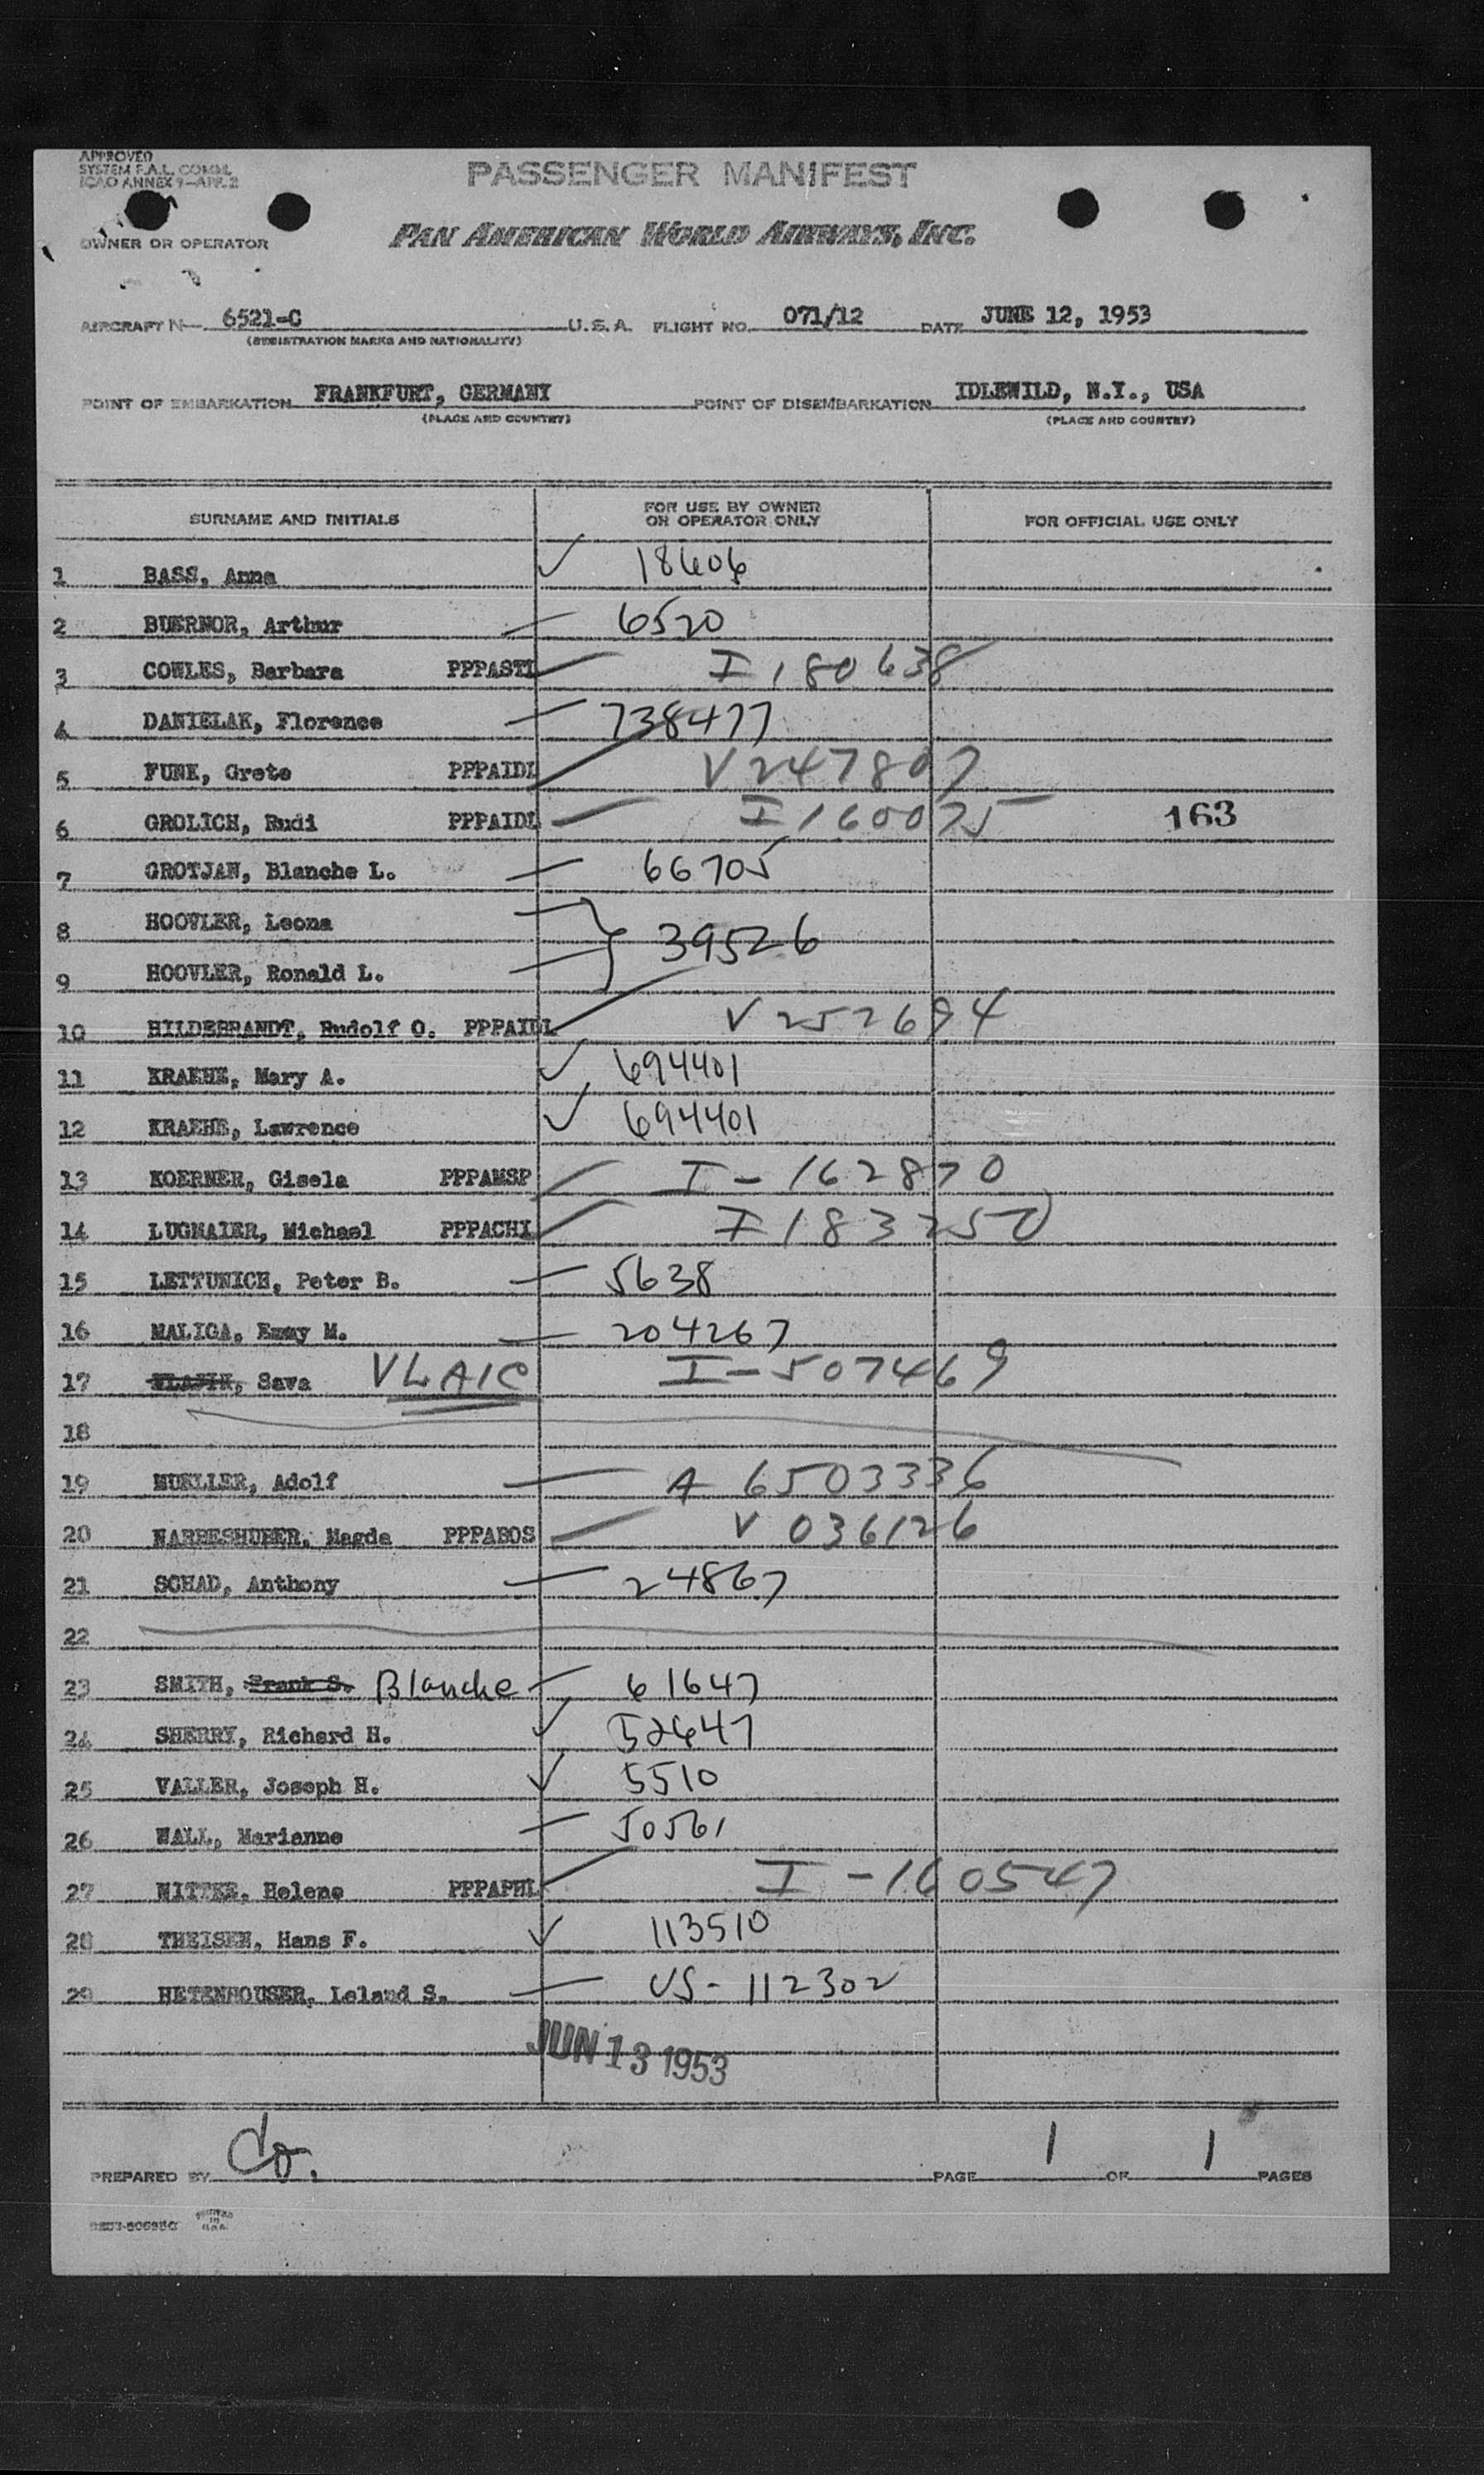 APPROVED
SYSTEM F.A.L. COMM.
ICAO ANNEX 9-APP. 2
PASSENGER MANIFEST
OWNER OR OPERATOR PAN AMERICAN WORLD AIRWAYS, INC.
AIRCRAFT N— 6521-C U.S.A. FLIGHT NO. 071/12 DATE JUNE 12, 1953
(REGISTRATION MARKS AND NATIONALITY)
POINT OF EMBARKATION FRANKFURT, GERMANY POINT OF DISEMBARKATION IDLEWILD, N.Y., USA
(PLACE AND COUNTRY) (PLACE AND COUNTRY)
SURNAME AND INITIALS FOR USE BY OWNER OR OPERATOR ONLY FOR OFFICIAL USE ONLY
1 BASS, Anna 18606
2 BUERNOR, Arthur 6520
3 COWLES, Barbara PPPASTL I 180638
4 DANIELAK, Florence 738477
5 FUNK, Grete PPPAIDL V 247807
6 GROLICH, Rudi PPPAIDL I 160075 163
7 GROTJAN, Blanche L. 66705
8 HOOVLER, Leona
39526
9 HOOVLER, Ronald L.
10 HILDEBRANDT, Rudolf O. PPPAIDL V 252694
11 KRAEHE, Mary A. 694401
12 KRAEHE, Lawrence 694401
13 KOERNER, Gisela PPPAMSP I-162870
14 LUGMAIER, Michael PPPACHI I 183250
15 LETTUNICH, Peter B. 5638
16 MALIGA, Emmy M. 204267
17 Sava VLAIC I-507469
18
19 MUELLER, Adolf A 6503336
20 NARBESHUBER, Magda PPPABOS V 036126
21 SCHAD, Anthony 24867
22
23 SMITH, Frank S. Blanche 61647
24 SHERRY, Richard H. 52647
25 VALLER, Joseph H. 5510
26 WALL, Marianne 50561
27 Helene PPPAPHL I-160547
28 THEISEN, Hans F. 113510
29 HETENHOUSER, Leland S. US-112302
JUN 13 1953
PREPARED BY Co. PAGE 1 OF 1 PAGES
PRINTED IN U.S.A.